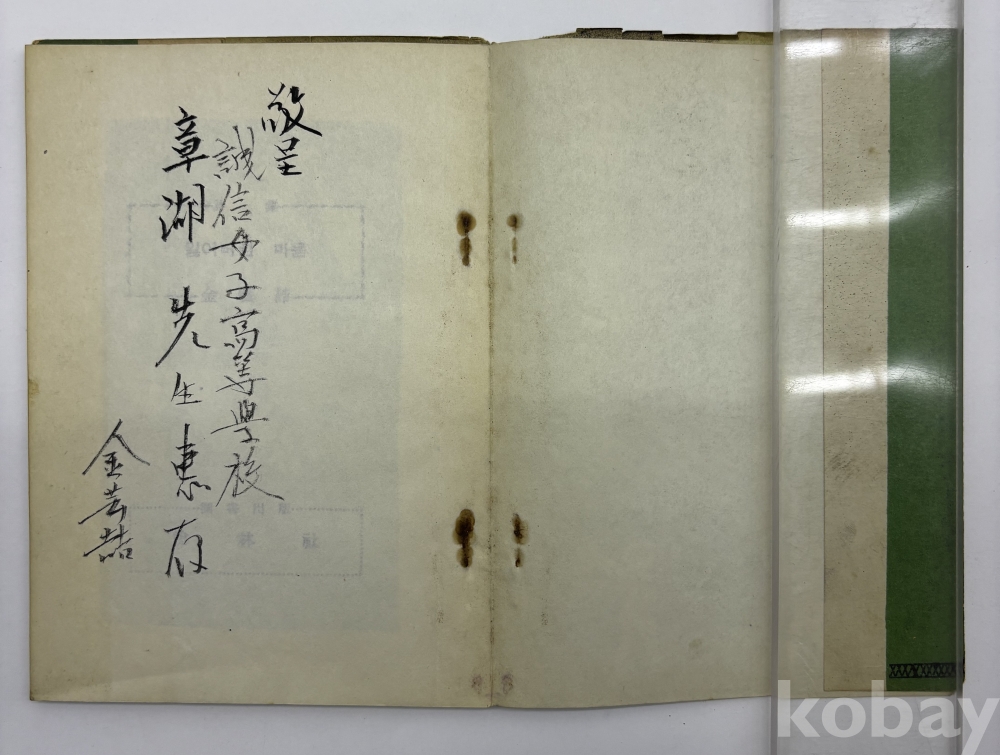 敬呈
誠信女子高等學校
章湖 先生 惠存
金芸喆
kobay